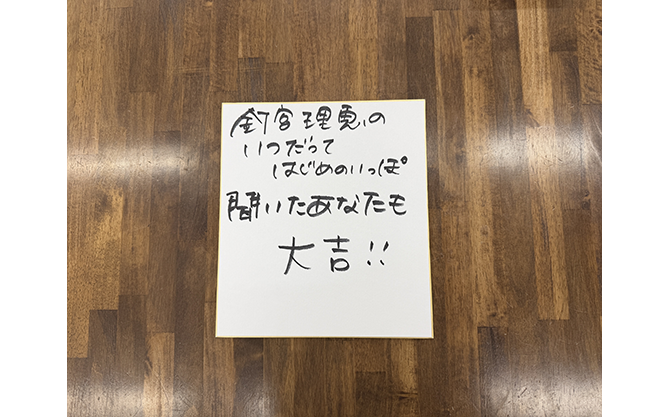 釘宮理恵の
いつだって
はじめのいっぽ
聞いたあなたも
大吉!!